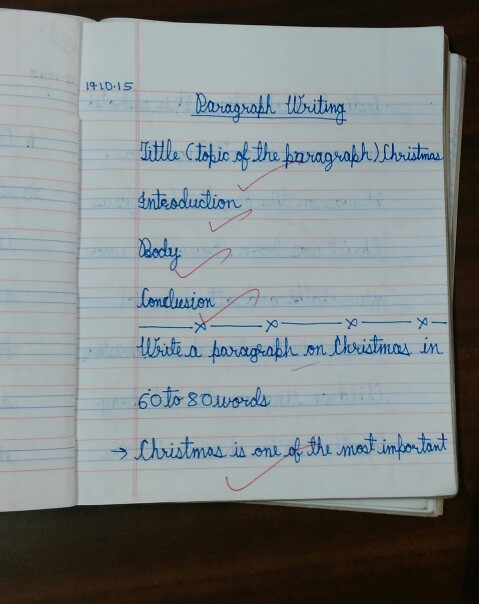 19.10.15
Paragraph Writing
Tittle (topic of the paragraph) Christmas
Introduction
Body
Conclusion
Write a paragraph on Christmas in
60 to 80 words
→ Christmas is one of the most important